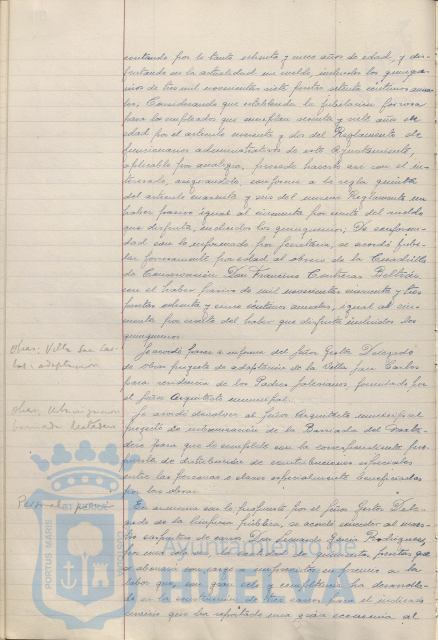 contando por lo tanto setenta y cinco años de edad, y dis-
frutando en la actualidad un sueldo, incluidos los quinque-
nios de tres mil novecientas siete pesetas setenta céntimos anua-
les. Considerando que establecida la jubilación forzosa
para los empleados que cumplan setenta y siete años de
edad por el artículo noventa y dos del Reglamento de
funcionarios administrativos de este Ayuntamiento,
aplicable por analogía, procede hacerlo así con el in-
teresado, asignándole, conforme a la regla quinta
del artículo cuarenta y seis del mismo Reglamento un
haber pasivo igual al cincuenta por ciento del sueldo
que disfruta, incluidos los quinquenios; De conformi-
dad con lo informado por Secretaría, se acordó jubi-
lar forzosamente por edad al obrero de la Cuadrilla
de Conservación Don Francisco Contreras Beltrán
con el haber pasivo de mil novecientas cincuenta y tres
pesetas ochenta y cinco céntimos anuales, igual al cin-
cuenta por ciento del haber que disfruta incluidos los
quinquenios.
Obras: Villa San Car-
los: adaptación
Se acordó pasar a informe del Señor Gestor Delegado
de obras proyecto de adaptación de la Villa San Carlos
para residencia de los Padres Salesianos, formulado por
el Señor Arquitecto municipal.
Obras, Urbanización
barriada
Se acordó devolver al Señor Arquitecto municipal el
proyecto de urbanización de la Barriada del
para que lo complete con la correspondiente pro-
puesta de distribución de contribuciones especiales
entre las personas o clases especialmente beneficiadas
por las obras.
En armonía con lo propuesto por el Señor Gestor Dele-
gado de la limpieza pública, se acordó conceder al maes-
tro carpintero de carros Don Leonardo García Rodríguez,
por una sola vez, de cincuenta pesetas, que
se abonará con cargo a imprevistos en premio a la
labor que, con gran celo y competencia ha desarrolla-
do en la construcción de tres carros para el indicado
servicio que ha reportado una gran economía al
PORTUS MARIS
CUSTODIA
Ayuntamiento de
HUELVA